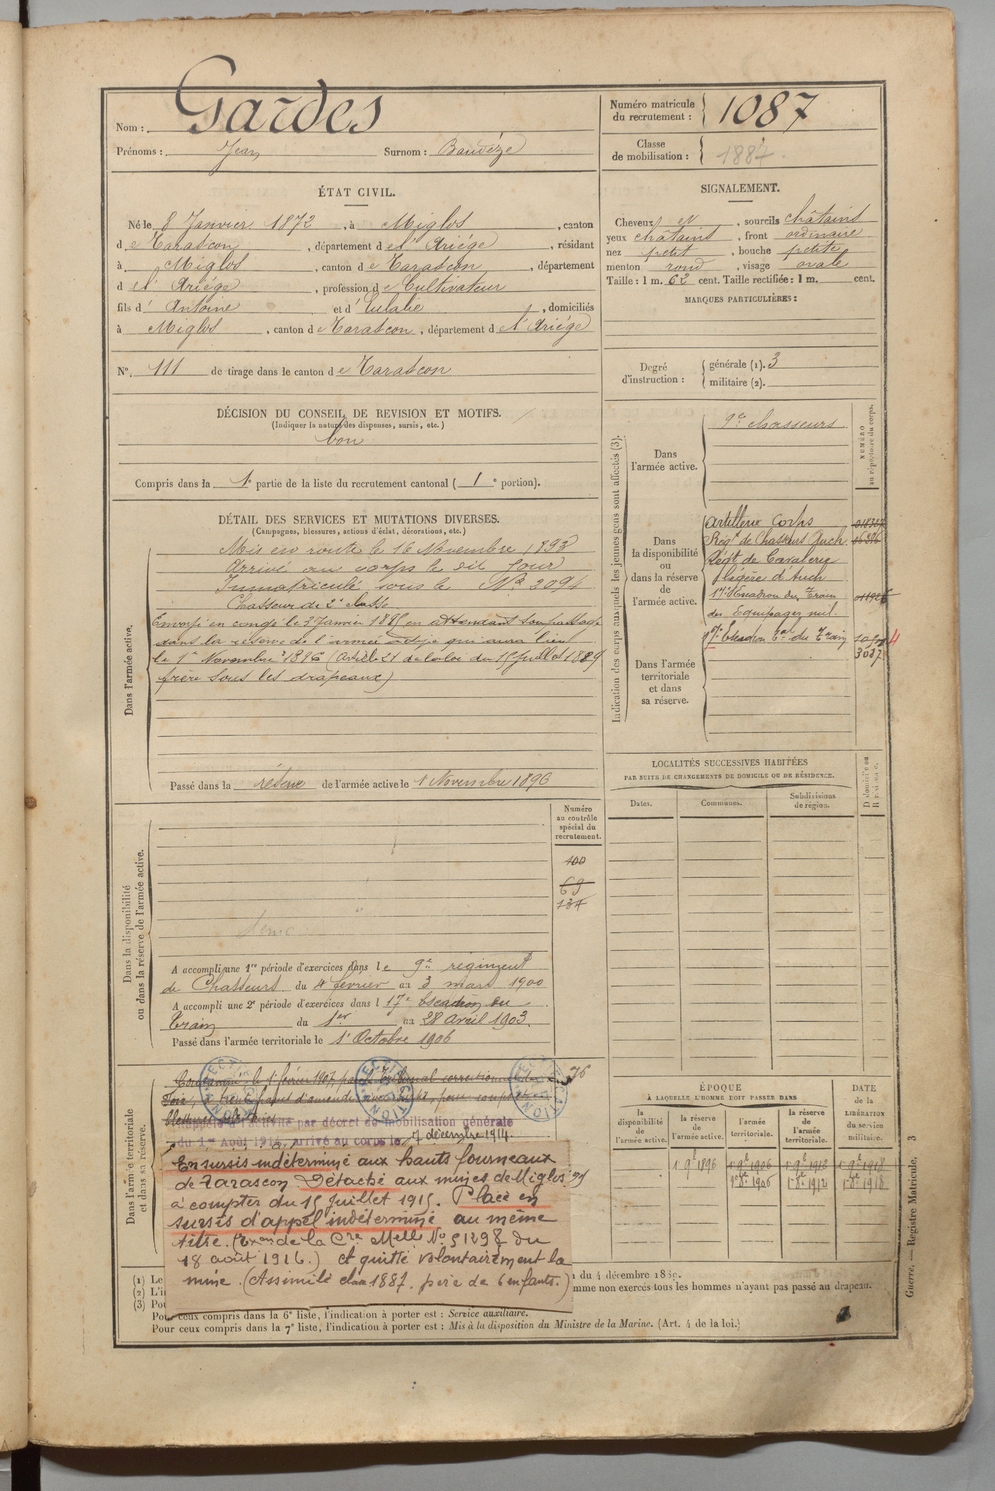 Nom : Gardes
Prénoms : Jean Surnom : Baudèze
Numéro matricule du recrutement : 1087
Classe de mobilisation : 1887.
ÉTAT CIVIL.
Né le 8 Janvier 1872, à Miglos, canton
de Tarascon, département de l'Ariège, résidant
à Miglos, canton de Tarascon, département
d el' Ariége, profession de Cultivateur
fils d' Antoine et d' Eulalie, domiciliés
à Miglos, canton de Tarascon, département de l'Ariége
N° 111 de tirage dans le canton de Tarascon
SIGNALEMENT.
Cheveux et, sourcils châtains
yeux châtains, front ordinaire
nez petit, bouche petite
menton rond, visage ovale
Taille : 1 m. 62 cent. Taille rectifiée : 1 m. cent.
MARQUES PARTICULIÈRES :
Degré d'instruction : générale (1). 3
militaire (2).
DÉCISION DU CONSEIL DE REVISION ET MOTIFS.
(Indiquer la nature des dispenses, sursis, etc.)
bon
Compris dans la 1e partie de la liste du recrutement cantonal ( 1e portion).
DÉTAIL DES SERVICES ET MUTATIONS DIVERSES.
(Campagnes, blessures, actions d'éclat, décorations, etc.)
Dans l'armée active.
Mis en route le 16 Novembre 1893
Arrivé au corps le dit jour
Immatriculé sous le N° 3094
Chasseur de 2e classe
Envoyé en congé le 3 Janvier en attendant son passage
dans la réserve de l'armée active qui aura lieu
le 1er Novembre 1896 (Article 21 de la loi du 15 Juillet 1889
frère sous les drapeaux)
Passé dans la réserve de l'armée active le 1 Novembre 1896
Indication des corps auxquels les jeunes gens sont affectés (3).
NUMÉRO au répertoire du corps.
Dans l'armée active.
9e chasseurs
Dans la disponibilité ou dans la réserve de l'armée active.
Artillerie Corps
Régt de Chasseurs Auch
Régt de Cavalerie
légère d'Auch
17e Escadron du Train
des Equipages mil.
Dans l'armée territoriale et dans sa réserve.
17e Escadron du Train
LOCALITÉS SUCCESSIVES HABITÉES
PAR SUITE DE CHANGEMENTS DE DOMICILE OU DE RÉSIDENCE.
Dates. Communes. Subdivisions de région.
Dans la disponibilité ou dans la réserve de l'armée active.
Numéro au contrôle spécial du recrutement.
100
69
134
A accompli une 1re période d'exercices dans le 9e régiment
de Chasseurs du 4 février au 3 mars 1900
A accompli une 2e période d'exercices dans l 17e Escadron du
train du 1er au 28 avril 1903.
Passé dans l'armée territoriale le 1er Octobre 1906
Dans l'armée territoriale et dans sa réserve.
Condamné le 1er février 1907 par le tribunal correctionnel de
Foix,
76
Rappelé à l'activité par décret de mobilisation générale
du 1er Août 1914, arrivé au corps le 7 décembre 1914.
En sursis indéterminé aux hauts fourneaux
de Tarascon. Détaché aux mines de Miglos
à compter du 15 juillet 1915. Placé en
sursis d'appel indéterminé au même
titre. (Exon de la Cre Melle No 51298 du
18 août 1916.) et quitté volontairement la
mine. (Assimilé clae 1887. père de 6 enfants.)
ÉPOQUE
À LAQUELLE L'HOMME DOIT PASSER DANS
la disponibilité de l'armée active. la réserve de l'armée active. l'armée territoriale. la réserve de l'armée territoriale.
DATE de la LIBÉRATION du service militaire.
1 9e 1896 1 9e 1906 1 9e 1912 1 9e 1918
1er 8e 1906 1er 8e 1912 1er 8e 1918
(1) Le
(2) L'i
(3) Pou
du 4 décembre 1889.
mme non exercés tous les hommes n'ayant pas passé au drapeau.
Pour ceux compris dans la 6e liste, l'indication à porter est : Service auxiliaire.
Pour ceux compris dans la 7e liste, l'indication à porter est : Mis à la disposition du Ministre de la Marine. (Art. 4 de la loi.)
Guerre. — Registre Matricule. 3